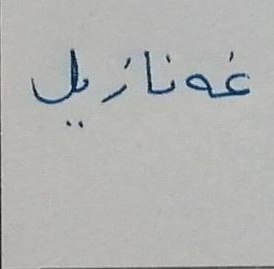 غەنازیل